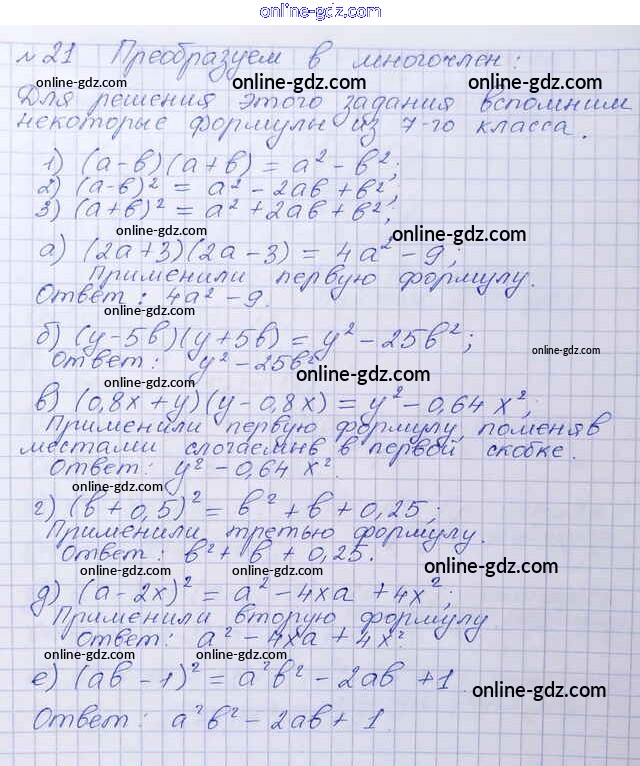 online-gdz.com
№21 Преобразуем в многочлен:
online-gdz.com online-gdz.com
Для решения этого задания вспомним
некоторые формулы из 7-го класса.
online-gdz.com online-gdz.com
1) (a-b)(a+b) = a² - b²;
2) (a-b)² = a² - 2ab + b²;
3) (a+b)² = a² + 2ab + b²;
online-gdz.com online-gdz.com
а) (2a+3)(2a-3) = 4a² - 9;
Применили первую формулу.
Ответ: 4a² - 9.
online-gdz.com
б) (y-5b)(y+5b) = y² - 25b²;
online-gdz.com
Ответ: y² - 25b²
online-gdz.com
в) (0,8x+y)(y-0,8x) = y² - 0,64x²;
Применили первую формулу, поменяв
местами слогаемые в первой скобке.
Ответ: y² - 0,64x².
online-gdz.com
г) (b+0,5)² = b² + b + 0,25;
online-gdz.com
Применили третью формулу.
Ответ: b² + b + 0,25.
online-gdz.com online-gdz.com online-gdz.com
д) (a-2x)² = a² - 4xa + 4x²;
Применили вторую формулу
Ответ: a² - 4xa + 4x².
online-gdz.com online-gdz.com
е) (ab-1)² = a²b² - 2ab + 1
online-gdz.com
Ответ: a²b² - 2ab + 1
online-gdz.com